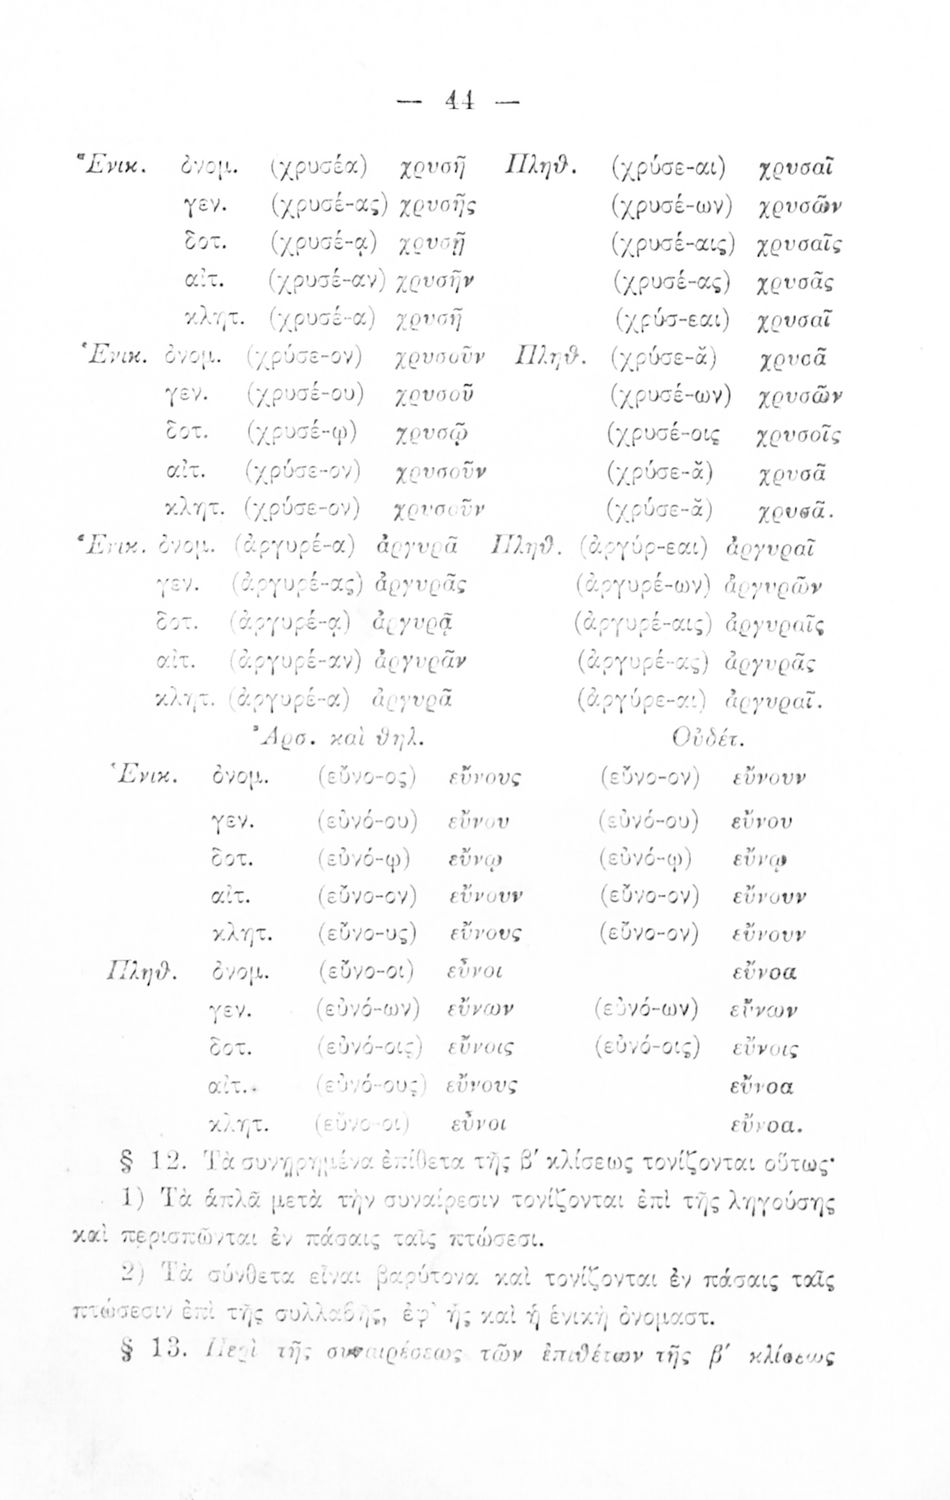 — 44 —
Ἑνικ. ὀνομ. (χρυσέα) χρυσῆ Πληθ. (χρύσε-αι) χρυσαῖ
γεν. (χρυσέ-ας) χρυσῆς (χρυσέ-ων) χρυσῶν
δοτ. (χρυσέ-ᾳ) χρυσῇ (χρυσέ-αις) χρυσαῖς
αἰτ. (χρυσέ-αν) χρυσῆν (χρυσέ-ας) χρυσᾶς
κλητ. (χρυσέ-α) χρυσῆ (χρύσ-εαι) χρυσαῖ
Ἑνικ. ὀνομ. (χρύσε-ον) χρυσοῦν Πληθ. (χρύσε-ᾰ) χρυσᾶ
γεν. (χρυσέ-ου) χρυσοῦ (χρυσέ-ων) χρυσῶν
δοτ. (χρυσέ-ῳ) χρυσῷ (χρυσέ-οις χρυσοῖς
αἰτ. (χρύσε-ον) χρυσοῦν (χρύσε-ᾰ) χρυσᾶ
κλητ. (χρύσε-ον) χρυσοῦν (χρύσε-ᾰ) χρυσᾶ.
Ἑνικ. ὀνομ. (ἀργυρέ-α) ἀργυρᾶ Πληθ. (ἀργύρ-εαι) ἀργυραῖ
γεν. (ἀργυρέ-ας) ἀργυρᾶς (ἀργυρέ-ων) ἀργυρῶν
δοτ. (ἀργυρέ-ᾳ) ἀργυρᾷ (ἀργυρέ-αις) ἀργυραῖς
αἰτ. (ἀργυρέ-αν) ἀργυρᾶν (ἀργυρέ-ας) ἀργυρᾶς
κλητ. (ἀργυρέ-α) ἀργυρᾶ (ἀργύρε-αι) ἀργυραῖ.
Ἀρσ. καὶ θηλ. Οὐδέτ.
Ἑνικ. ὀνομ. (εὔνο-ος) εὔνους (εὔνο-ον) εὔνουν
γεν. (εὐνό-ου) εὔνου (εὐνό-ου) εὔνου
δοτ. (εὐνό-ῳ) εὔνῳ (εὐνό-ῳ) εὔνῳ
αἰτ. (εὔνο-ον) εὔνουν (εὔνο-ον) εὔνουν
κλητ. (εὔνο-υς) εὔνους (εὔνο-ον) εὔνουν
Πληθ. ὀνομ. (εὔνο-οι) εὖνοι εὔνοα
γεν. (εὐνό-ων) εὔνων (εὐνό-ων) εὔνων
δοτ. (εὐνό-οις) εὔνοις (εὐνό-οις) εὔνοις
αἰτ. (εὐνό-ους) εὔνους εὔνοα
κλητ. (εὔνο-οι) εὖνοι εὔνοα.
§ 12. Τὰ συνῃρημένα ἐπίθετα τῆς β′ κλίσεως τονίζονται οὕτως·
1) Τὰ ἁπλᾶ μετὰ τὴν συναίρεσιν τονίζονται ἐπὶ τῆς ληγούσης
καὶ περισπῶνται ἐν πάσαις ταῖς πτώσεσι.
2) Τὰ σύνθετα εἶναι βαρύτονα καὶ τονίζονται ἐν πάσαις ταῖς
πτώσεσιν ἐπὶ τῆς συλλαβῆς, ἐφ' ἧς καὶ ἡ ἑνικὴ ὀνομαστ.
§ 13. Περὶ τῆς συναιρέσεως τῶν ἐπιθέτων τῆς β′ κλίσεως